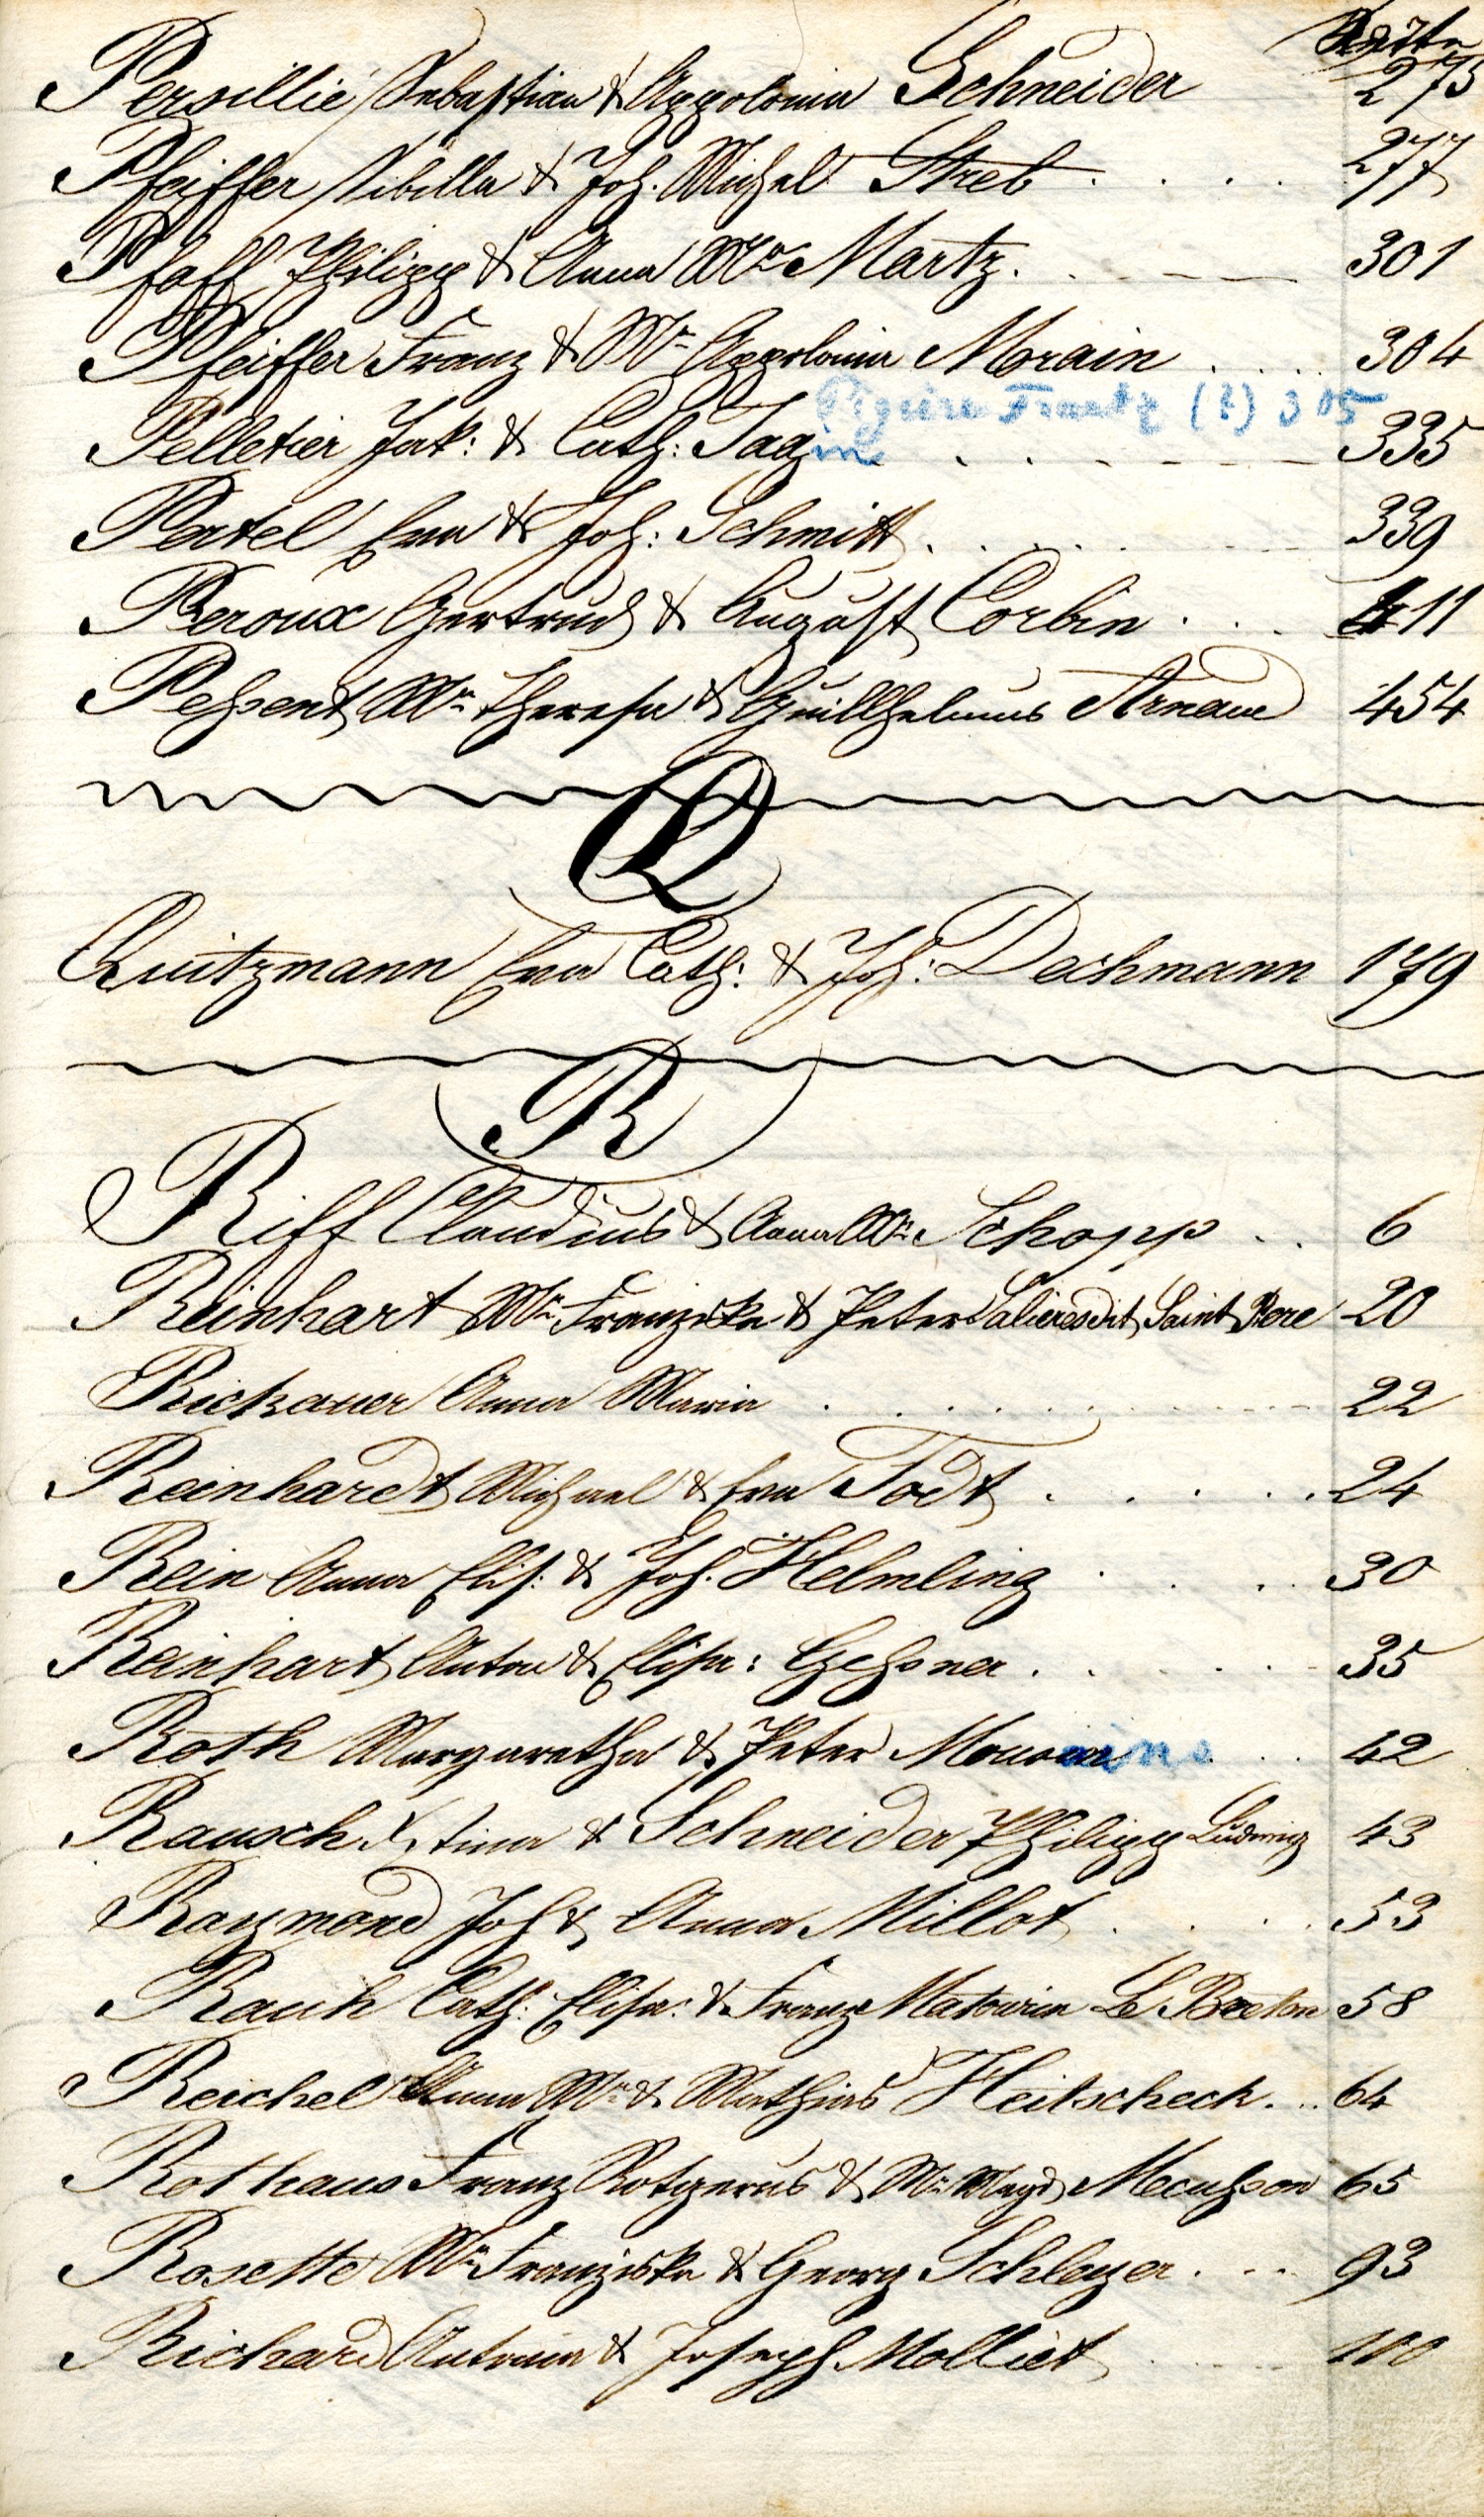 Seite
Persillié Sebastian & Appolonia Schneider 275
Pfeiffer Sibilla & Joh. Michel Streb . . . . 277
Pfaff Philipp & Anna Mª Martz. . . . 301
Pfeiffer Franz & Mª Appolonia Morain . . . . 304
Pigiere Frantz (?) 305
Pelletier Jak: & Cath: Jagin . . . . 335
Pertel Eva & Joh: Schmitt . . . . 339
Peroux Gertrud & August Corbin . . . 411
Peßent Mª Theresa & Guillhelmus Arnaud 454
Q
Quitzmann Eva Cath: & Joh: Dechmann 179
R
Riff Claudius & Anna Mª Schopp . . 6
Reinhart Mª Franziska & Peter Salieres dit Saint Pere 20
Rickauer Anna Maria . . . . 22
Reinhardt Michael & Eva Todt . . . . 24
Rein Anna Elis: & Joh. Helmling . . . 30
Reinhart Anton & Elisa: . . . . 35
Roth Margaretha & Peter . . 42
Rausch Xstina & Schneider Philipp Ludwig 43
Raymond Joh & Anna Millot . . . . 53
Rauh Cath: Elisa: & Franz Matourin Le Breton 58
Reichel Anna Mª & Mathias Heitscheck . . . 64
Rothaus Franz Rotgerus & Mª Magd. 65
Rosette Mª Franziska & Georg Schleyer . . . 93
Richard Antonia & Joseph Molliet . . . 100